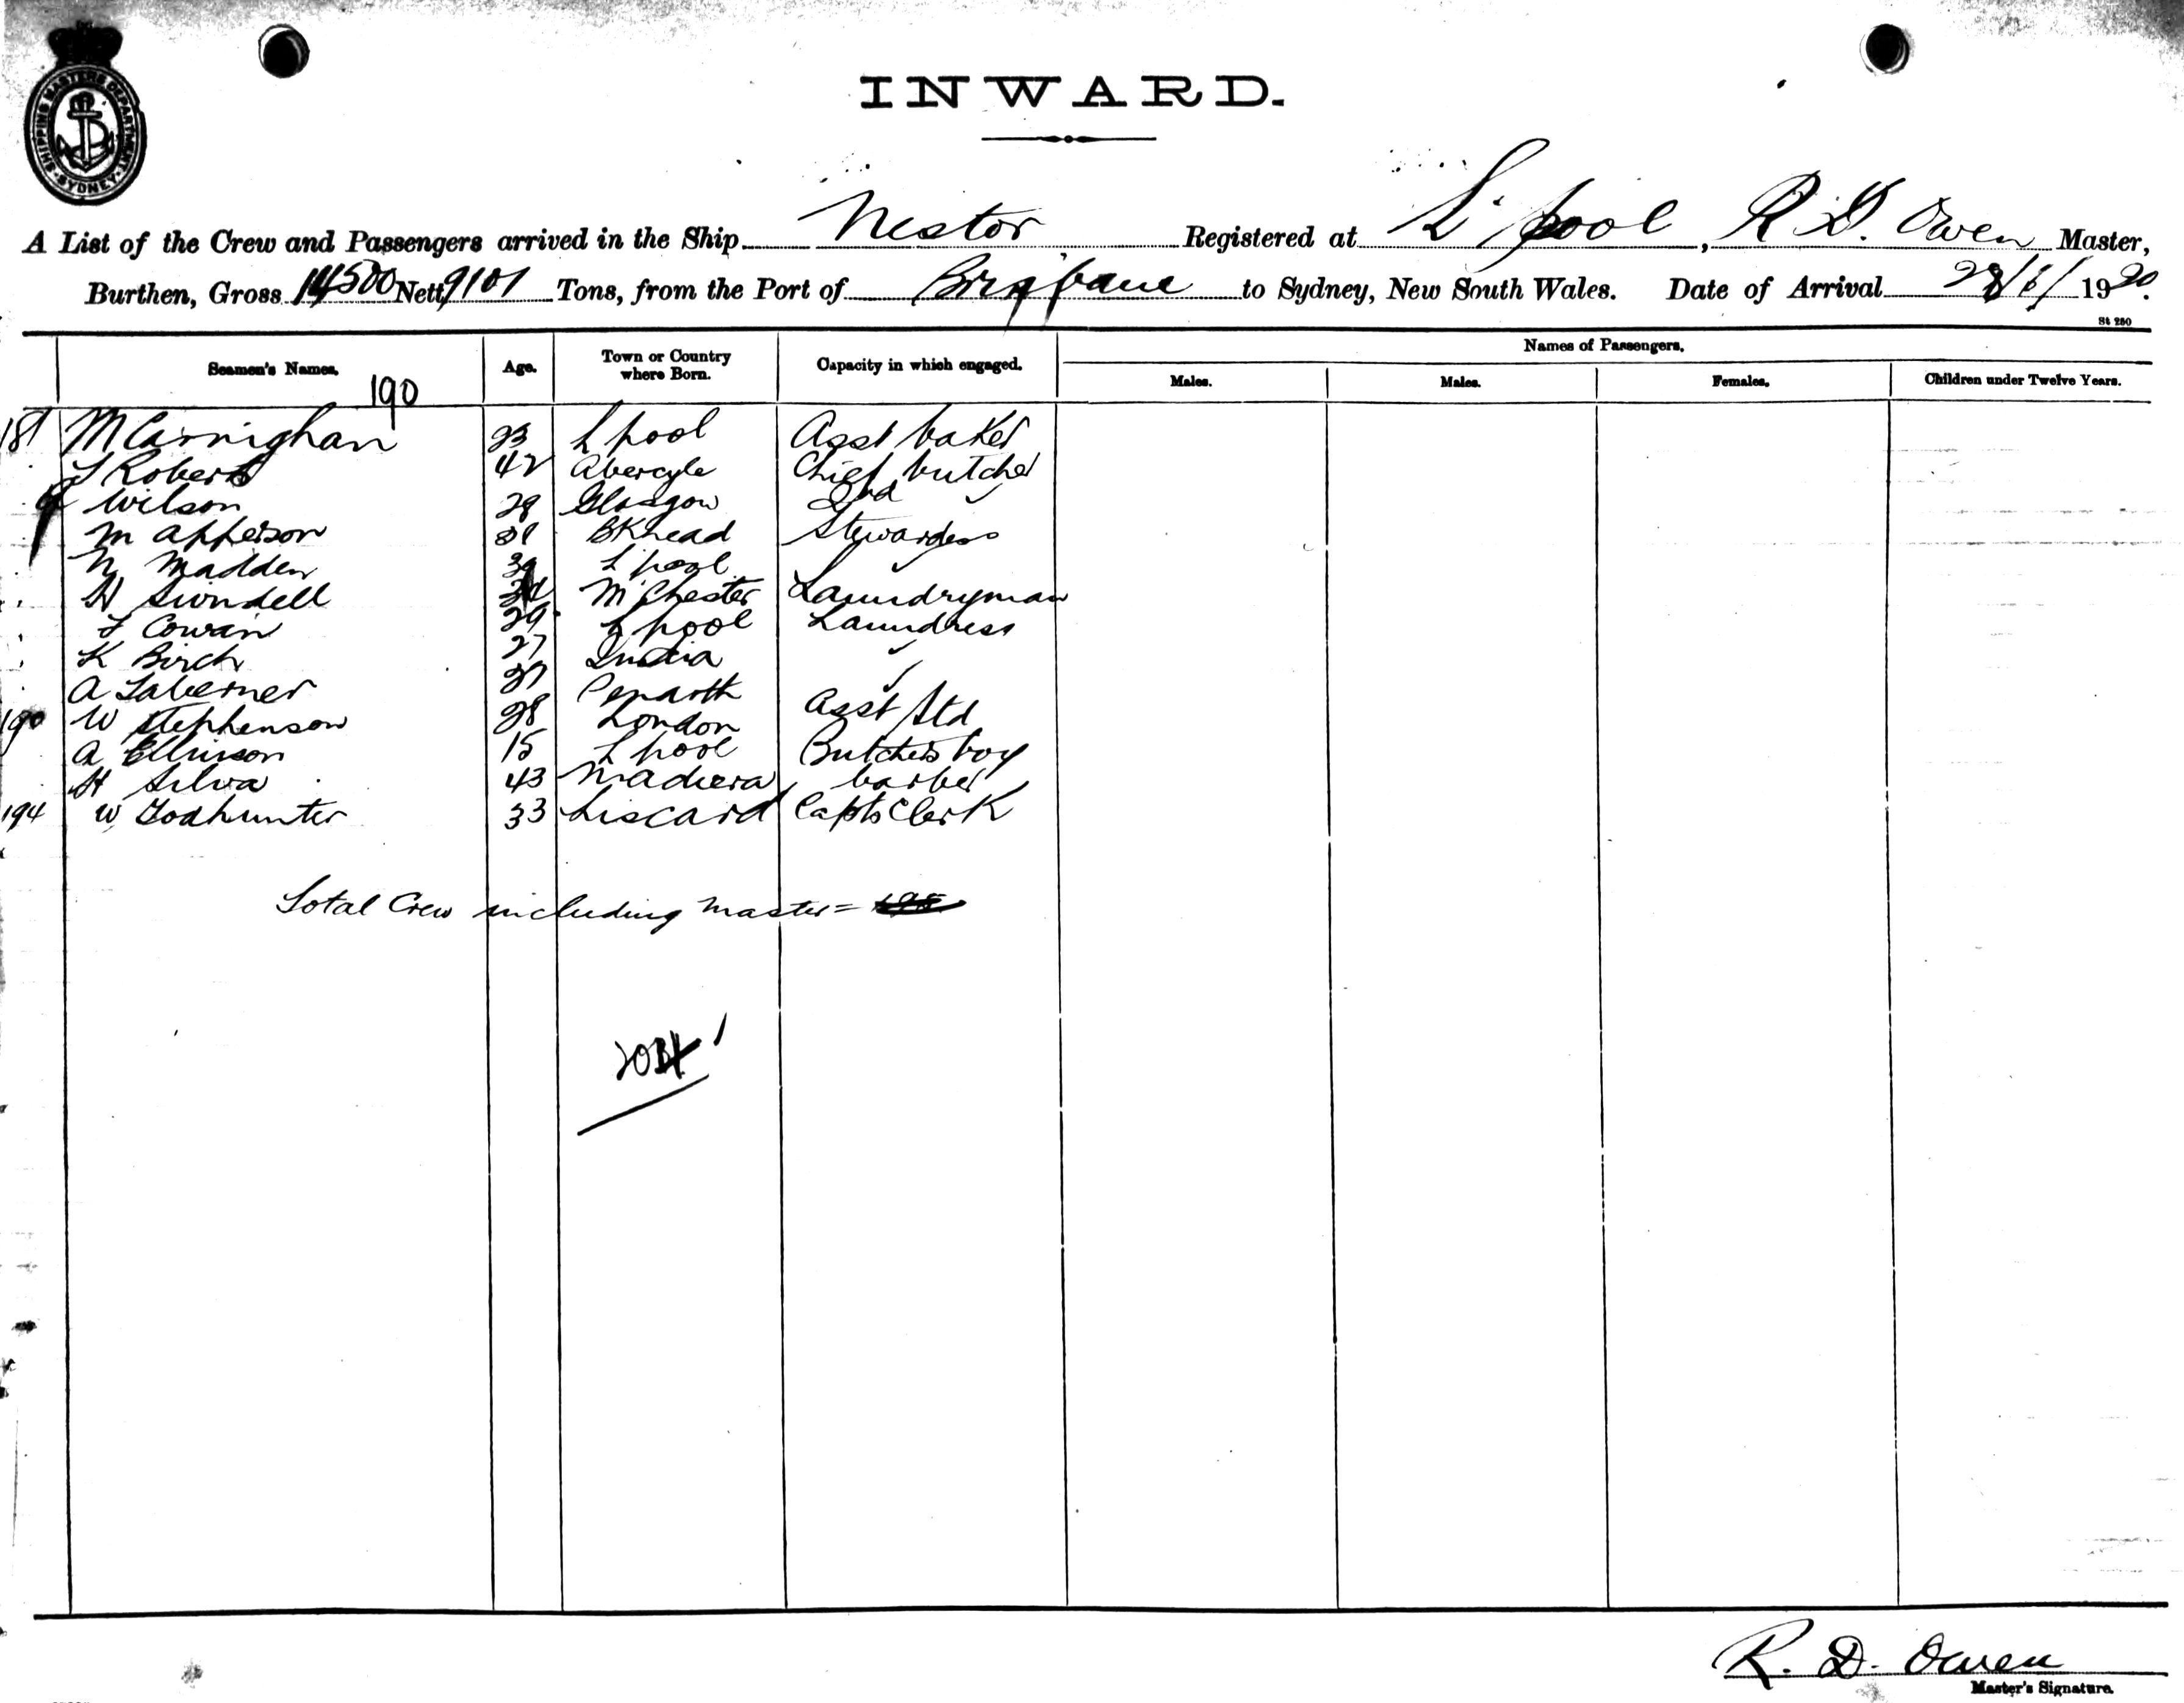 SHIPPING MASTERS DEPARTMENT SYDNEY
INWARD.
A List of the Crew and Passengers arrived in the Ship Nestor Registered at L'pool, R D. Owen Master,
Burthen, Gross 14500 Nett 9101 Tons, from the Port of Brisbane to Sydney, New South Wales. Date of Arrival 1920.
St 280
Seamen's Names. Age. Town or Country where Born. Capacity in which engaged. Names of Passengers.
Males. Males. Females. Children under Twelve Years.
190
M Carnighan 23 L pool Asst baker
Roberts 42 Abergele Chief butcher
Wilson 28 Glasgow 2nd ✓
M Apperson BKhead Stewardess
N Madden L'pool ✓
H Swindell M'Chester Laundryman
Cowan 29 L pool Laundress
K Birch 27 India ✓
A Taberner Penarth ✓
190 W Stephenson 28 London Asst Std
A Ellinson 15 L pool Butchers boy
H Silva 43 Madiera barber
194 W Todhunter 33 Liscard Capts Clerk
Total Crew including Master =
R. D. Owen
Master's Signature.